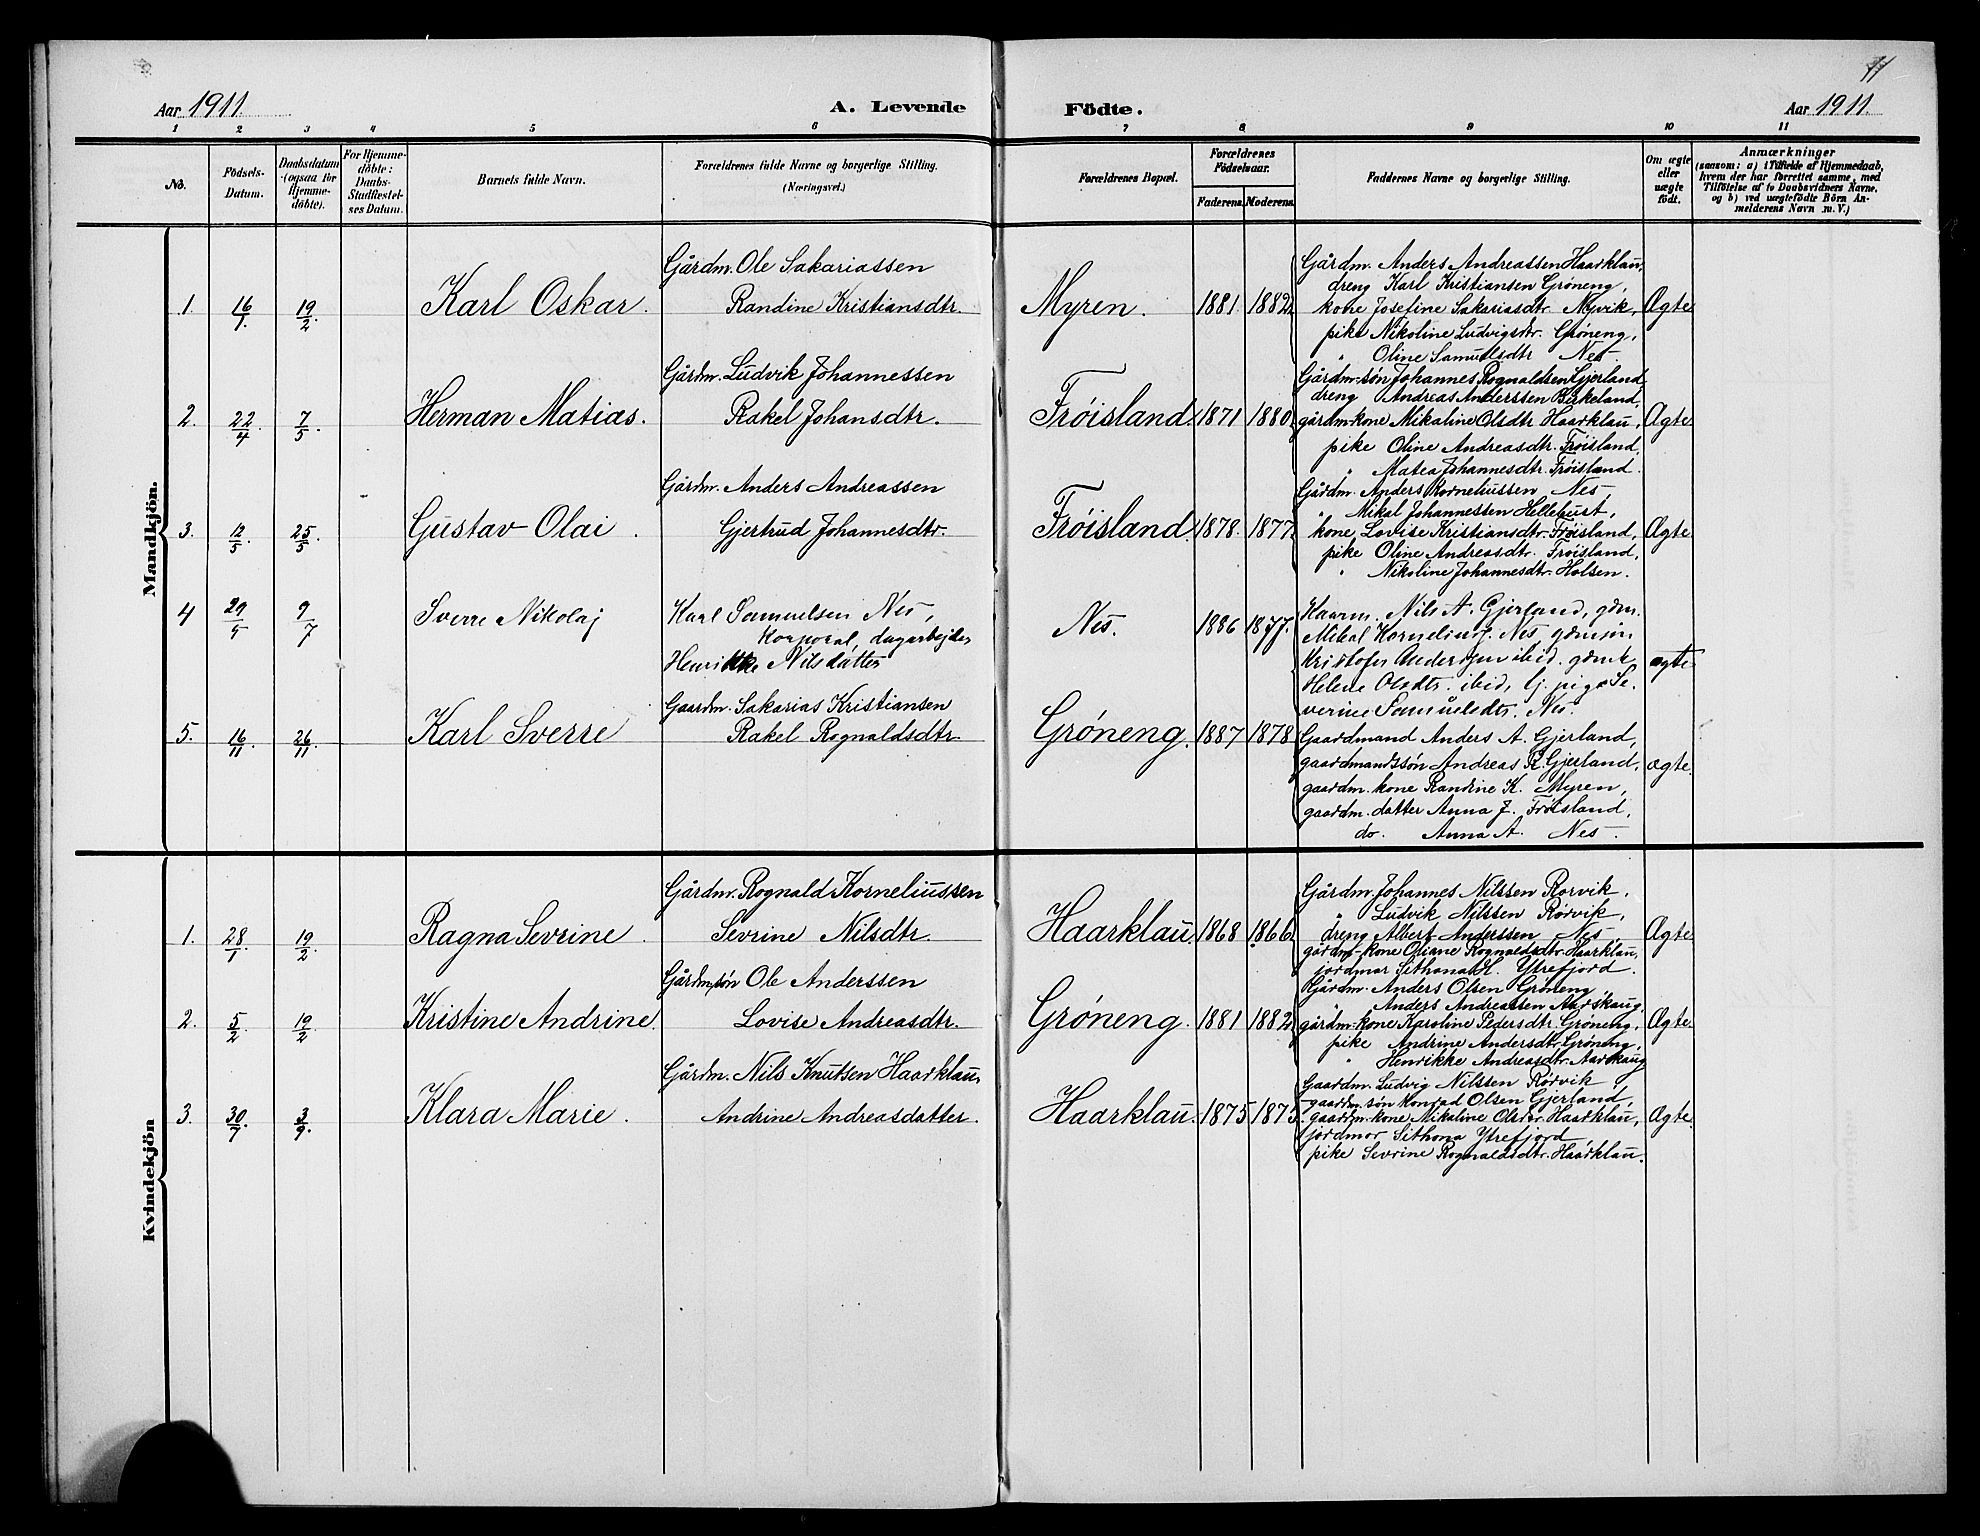 11
Aar 1911.
A. Levende
Födte.
Aar 1911.
1 2 3 4 5 6 7 8 9 10 11
No.
Födsels-
Datum.
Daabsdatum
(ogsaa for
Hjemme-
döbte).
For Hjemme-
döbte:
Daabs-
Stadfæstel-
ses Datum.
Barnets fulde Navn.
Forældrenes fulde Navne og borgerlige Stilling.
(Næringsvei.)
Forældrenes Bopæl.
Forældrenes
Födselsaar.
Faderens. Moderens.
Faddernes Navne og borgerlige Stilling.
Om ægte
eller
uægte
födt.
Anmærkninger
(saasom: a) i Tilfælde af Hjemmedaab,
hvem der har forrettet samme, med
Tilföielse af to Daabsvidners Navne,
og b) ved uægtefödte Börn An-
melderens Navn m. V.)
Mandkjön.
1. 16/1. 19/2. Karl Oskar.
Gårdm. Ole Sakariassen
Randine Kristiansdtr.
Myren. 1881. 1882.
Gårdm. Anders Andreassen Haarklau,
dreng Karl Kristiansen Grøneng,
kone Josefine Sakariasdtr. Myvik,
pike Nikoline Ludvigsdtr. Grøneng,
" Oline Samuelsdtr Nes.
Ægte
2. 22/4. 7/5. Herman Matias.
Gårdm. Ludvik Johannessen
Rakel Johansdtr.
Frøisland. 1871 1880.
Gårdm.-søn Johannes Rognaldsen Gjerland,
dreng Andreas Anderssen Birkeland,
gårdm-kone Mikaline Olsdtr. Haarklau,
pike Oline Andreasdtr. Frøisland,
" Matea Johannesdtr. Frøisland.
Ægte
3. 12/5. 25/5. Gustav Olai.
Gårdm. Anders Andreassen
Gjertrud Johannesdtr.
Frøisland. 1878. 1877.
Gårdm. Anders Korneliussen Nes,
" Mikal Johannessen Hellebust,
kone Lovise Kristiansdtr. Frøisland,
pike Oline Andreasdtr. Frøisland,
" Nikoline Johannesdtr. Holsen.
Ægte
4 29/5 9/7 Sverre Nikolaj
Karl Samuelsen Nes,
Korporal, dagarbejder
Henrikke Nilsdatter
Nes. 1886 1877.
Kaarm. Nils A. Gjerland, gdm.
Mikal Kornelius. Nes, gdmsøn
Kristofer Andersen ibid. gdm.k
Helene Olsdtr. ibid, lj. pige Se-
verine Samuelsdtr. Nes.
ægte
5. 16/11. 26/11. Karl Sverre
Gaardm. Sakarias Kristiansen
Rakel Rognaldsdtr.
Grøneng. 1887 1878
Gaardmand Anders A. Gjerland,
gaardmandssøn Andreas R. Gjerland,
gaardm. kone Randine K. Myren,
gaardm. datter Anna J. Frøisland,
do. Anna A. Nes.
ægte.
Kvindekjön
1. 28/1 19/2 Ragna Sevrine.
Gårdm. Rognald Korneliussen
Sevrine Nilsdtr.
Haarklau. 1868 1866.
Gårdm. Johannes Nilssen Rørvik,
" Ludvik Nilssen Rørvik,
dreng Albert Anderssen Nes
gårdm-kone Oliane Rognaldsdtr. Haarklau,
jordmor Sithona H. Ytrefjord.
Ægte.
2. 5/2 19/2 Kristine Andrine.
Gårdm.søn Ole Anderssen
Lovise Andreasdtr.
Grøneng. 1881 1882.
Gårdm. Anders Olsen Grøneng
" Anders Andreassen Aarskaug,
gårdm-kone Karoline Pedersdtr. Grøneng,
pike Andrine Andersdtr. Grøneng,
" Henrikke Andreasdtr. Aarskaug
Ægte.
3. 30/7 3/9. Klara Marie.
Gårdm. Nils Knutsen Haarklau.
Andrine Andreasdatter.
Haarklau. 1875 1875.
Gaardm. Ludvig Nilssen Rørvik,
gaardm. søn Konrad Olsen Gjerland,
gaardm-kone Mikaline Olsdtr. Haarklau,
jordmor Sithona Ytrefjord
pike Sevrine Rognaldsdtr. Haarklau.
Ægte.